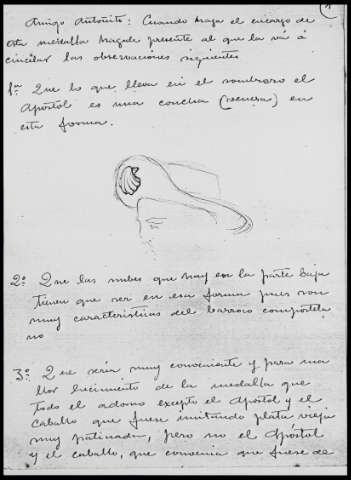 1
Amigo Antoñito: Cuando haga el encargo de
esta medalla hagale presente al que la vá á
cincelar las observaciones siguientes
1ª Que lo que lleva en el sombrero el
Apóstol es una concha (venera) en
esta forma.
2ª Que las nubes que hay en la parte baja
tienen que ser en esa forma pues son
muy caracteristicas del barroco compostela
no
3ª Que seria muy conveniente y para ma
llor lucimiento de la medalla que
todo el adorno excepto el Apóstol y el
caballo que fuese imitando plata vieja
muy patinada, pero no el Apóstol
y el caballo, que convenia que fuese de